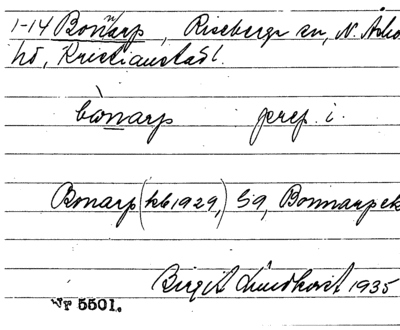 1-14 Bonnarp, Riseberga sn, N. Åsbo
hd, Kristianstad l.
bònarp prep. i.
Bonarp (kb 1929,) 59, Bonnarp ek
Birgit Lindkvist 1935
WF 5501.